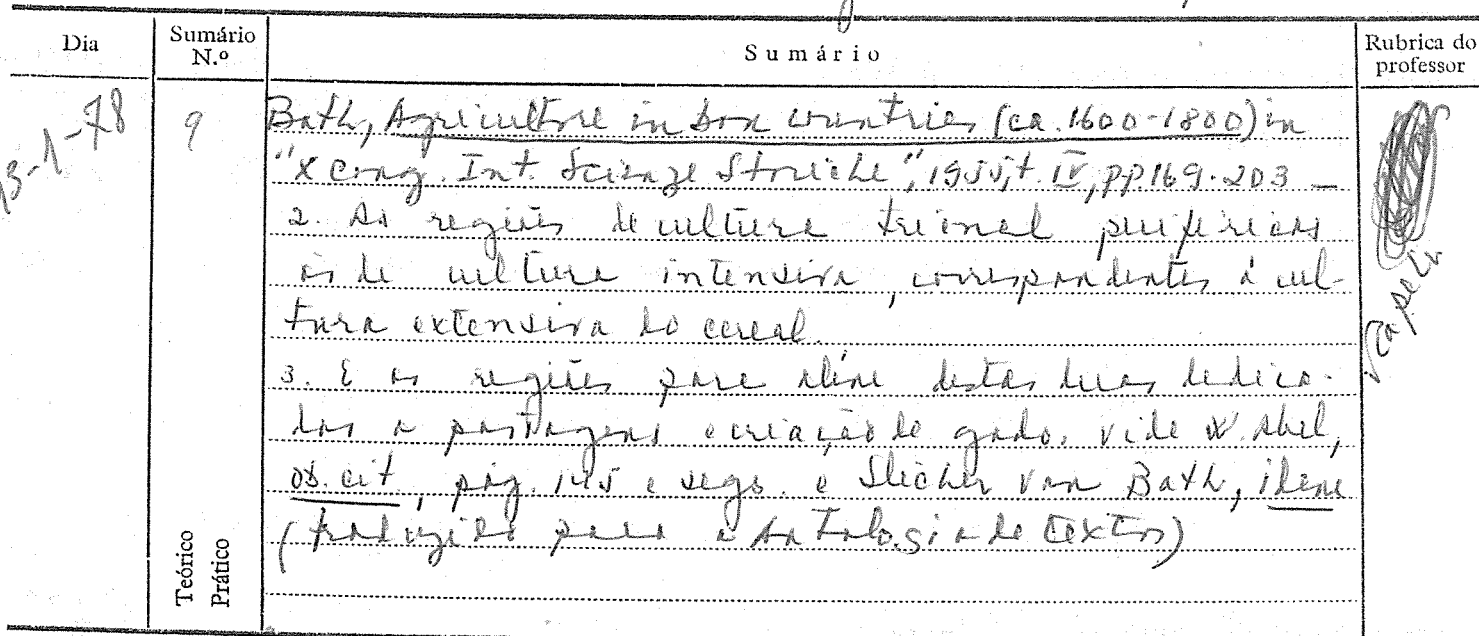 Dia Sumário N.º Sumário Rubrica do professor
13-1-78 9 Bath, Agriculture in Low countries (ca. 1600-1800) in
"X Cong. Int. Scienze Storiche", 1955, t. IV, pp. 169-203 -
2. As regiões de cultura trienal perifericas
às de cultura intensiva, correspondentes à cul-
tura extensiva do cereal.
3. E as regiões para alem destas duas dedica-
das a pastagens e criação de gado. Vide W. Abel,
ob. cit, pág. 145 e segs. e Slicher van Bath, idem
(traduzido para a Antologia de textos)
Teórico
Prático